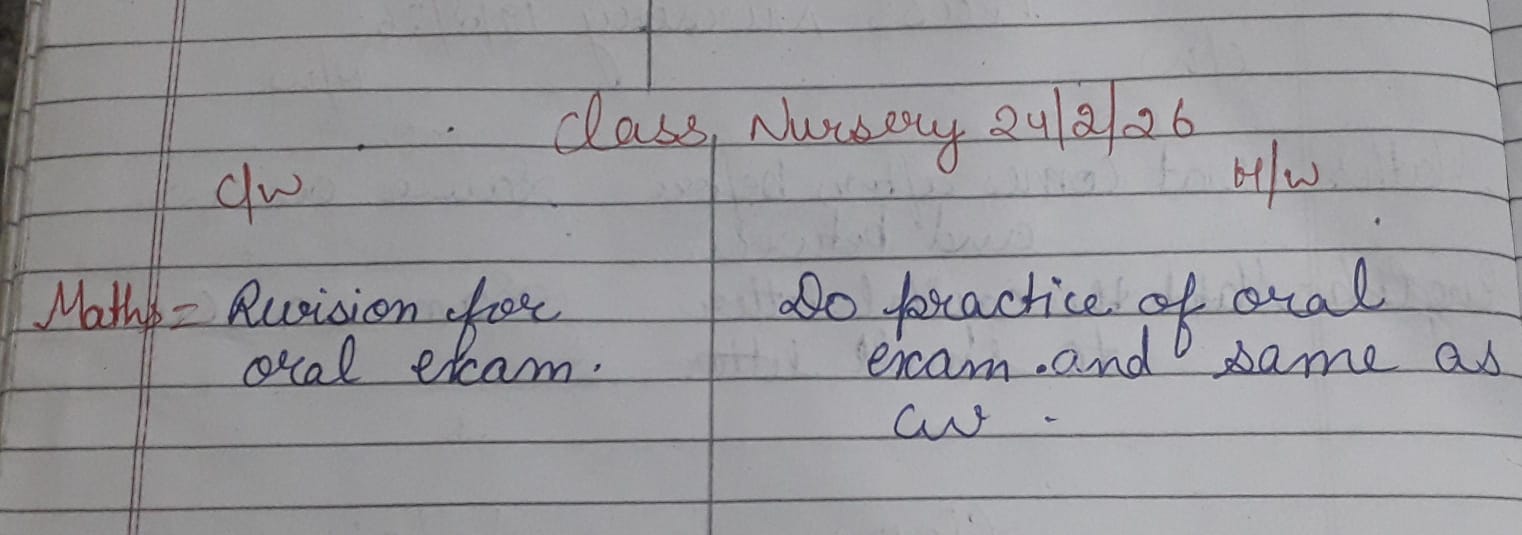 Class, Nursery 24/2/26
C/W
H/W
Maths = Revision for
oral exam.
Do practice of oral
exam. and same as
cw -